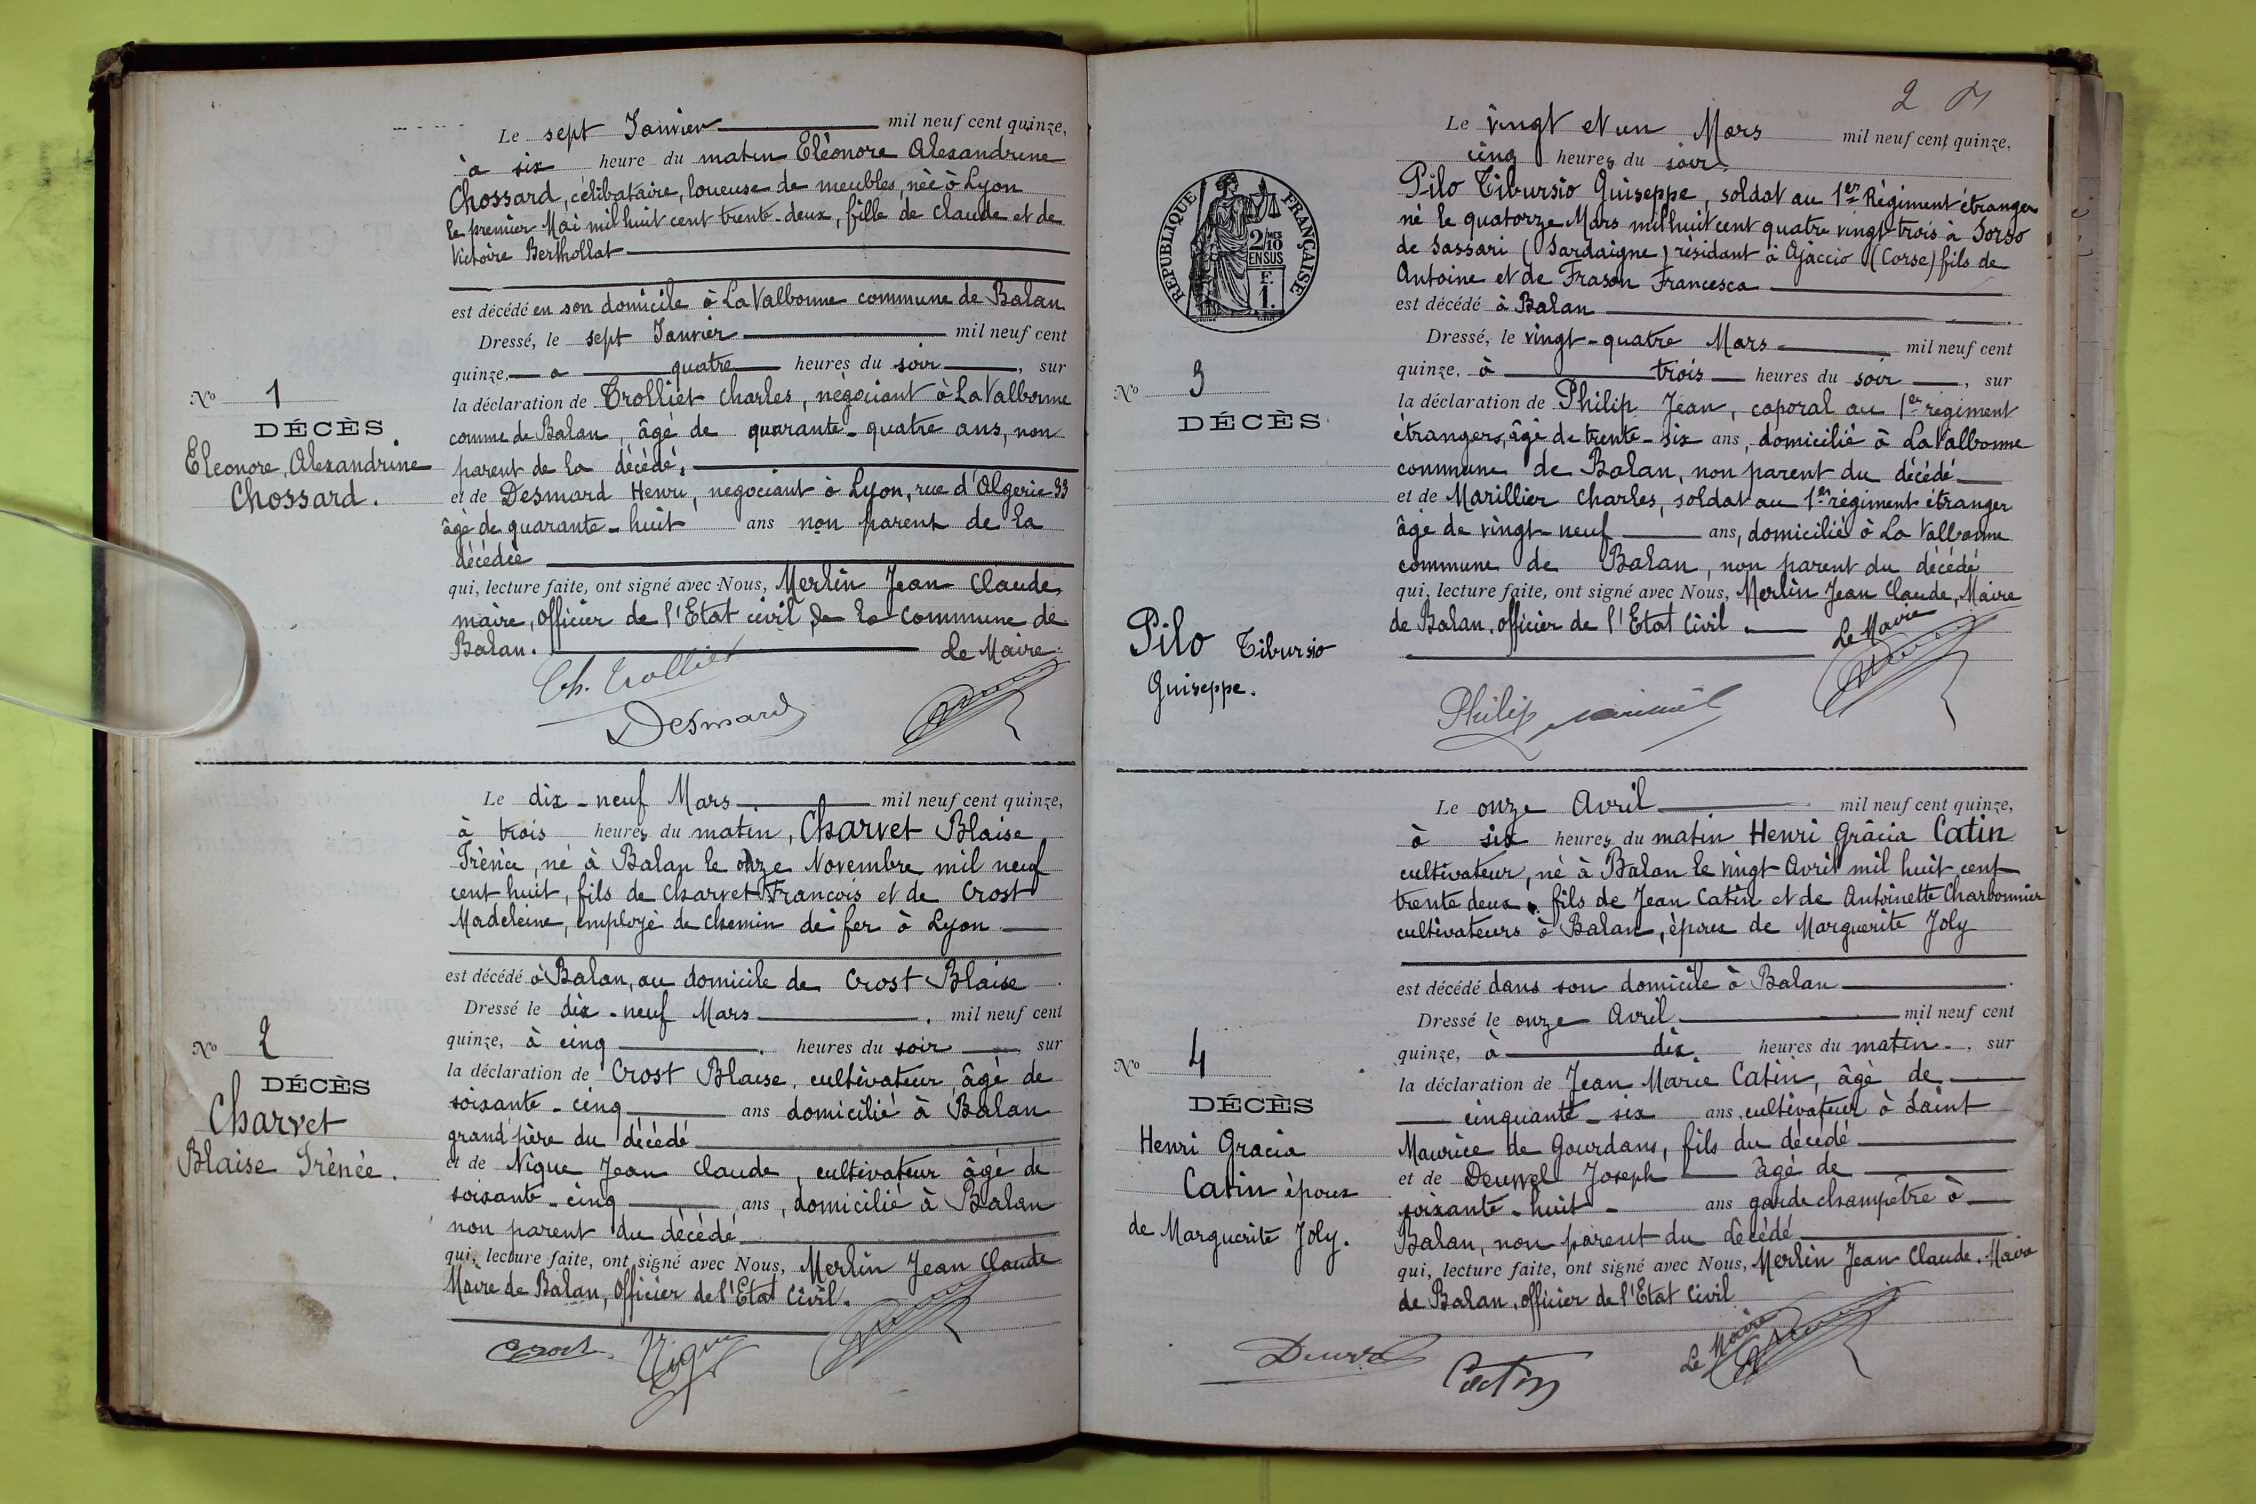 Le sept Janvier mil neuf cent quinze,
à six heure du matin Eléonore Alexandrine
Chossard, célibataire, loueuse de meubles, née à Lyon
le premier Mai mil huit cent trente-deux, fille de Claude et de
Victoire Berthollat
est décédé en son domicile à La Valbonne commune de Balan
Dressé, le sept Janvier mil neuf cent
quinze, à quatre heures du soir, sur
la déclaration de Trolliet Charles, négociant à La Valbonne
comme de Balan, âgé de quarante-quatre ans, non
parent de la décédé,
et de Desmard Henri, negociant à Lyon, rue d'Algerie 33
âgé de quarante-huit ans non parent de la
décédée
qui, lecture faite, ont signé avec Nous, Merlin Jean Claude,
maire, Officier de l'Etat civil de la commune de
Balan. Le Maire.
Ch. Trolliet
Desmard
No 1
DÉCÈS
Eleonore, Alexandrine
Chossard.
Le dix-neuf Mars mil neuf cent quinze,
à trois heures du matin, Charvet Blaise
Irénée, né à Balan le onze Novembre mil neuf
cent huit, fils de Charvet François et de Crost
Madeleine, employé de chemin de fer à Lyon
est décédé à Balan, au domicile de Crost Blaise
Dressé le dix-neuf Mars mil neuf cent
quinze, à cinq heures du soir, sur
la déclaration de Crost Blaise, cultivateur âgé de
soixante-cinq ans domicilié à Balan
grand'père du décédé
et de Nigue Jean Claude, cultivateur âgé de
soixante-cinq ans, domicilié à Balan
non parent du décédé
qui, lecture faite, ont signé avec Nous, Merlin Jean Claude
Maire de Balan, Officier de l'Etat Civil.
Crost Nigue
No 2
DÉCÈS
Charvet
Blaise Irénée.
2
Le vingt et un Mars mil neuf cent quinze,
cinq heures du soir
Pilo Tibursio Guiseppe, soldat au 1er Régiment étranger
né le quatorze Mars mil huit cent quatre vingt-trois à Sorso
de Sassari (Sardaigne) résidant à Ajaccio (Corse) fils de
Antoine et de Frason Francesca
est décédé à Balan
Dressé, le vingt-quatre Mars mil neuf cent
quinze, à trois heures du soir, sur
la déclaration de Philip Jean, caporal au 1er régiment
étrangers, âgé de trente-six ans, domicilié à La Valbonne
commune de Balan, non parent du décédé
et de Marillier Charles, soldat au 1er régiment étranger
âgé de vingt-neuf ans, domicilié à La Valbonne
commune de Balan, non parent du décédé
qui, lecture faite, ont signé avec Nous, Merlin Jean Claude, Maire
de Balan, officier de l'Etat Civil Le Maire
Philip
RÉPUBLIQUE FRANÇAISE
2/10 MES
EN SUS
F.
1.
No 3
DÉCÈS
Pilo Tibursio
Guiseppe.
Le onze Avril mil neuf cent quinze,
à six heures du matin Henri Grâcia Catin
cultivateur, né à Balan le vingt Avril mil huit cent
trente deux, fils de Jean Catin et de Antoinette Charbonnier
cultivateurs à Balan, époux de Marguerite Joly
est décédé dans son domicile à Balan
Dressé le onze Avril mil neuf cent
quinze, à dix heures du matin, sur
la déclaration de Jean Marie Catin, âgé de
cinquante-six ans, cultivateur à Saint
Maurice de Gourdans, fils du décédé
et de Deurvel Joseph âgé de
soixante-huit ans garde champêtre à
Balan, non parent du décédé
qui, lecture faite, ont signé avec Nous, Merlin Jean Claude, Maire
de Balan, officier de l'Etat Civil
Le Maire
Catin
No 4
DÉCÈS
Henri Gracia
Catin époux
de Marguerite Joly.